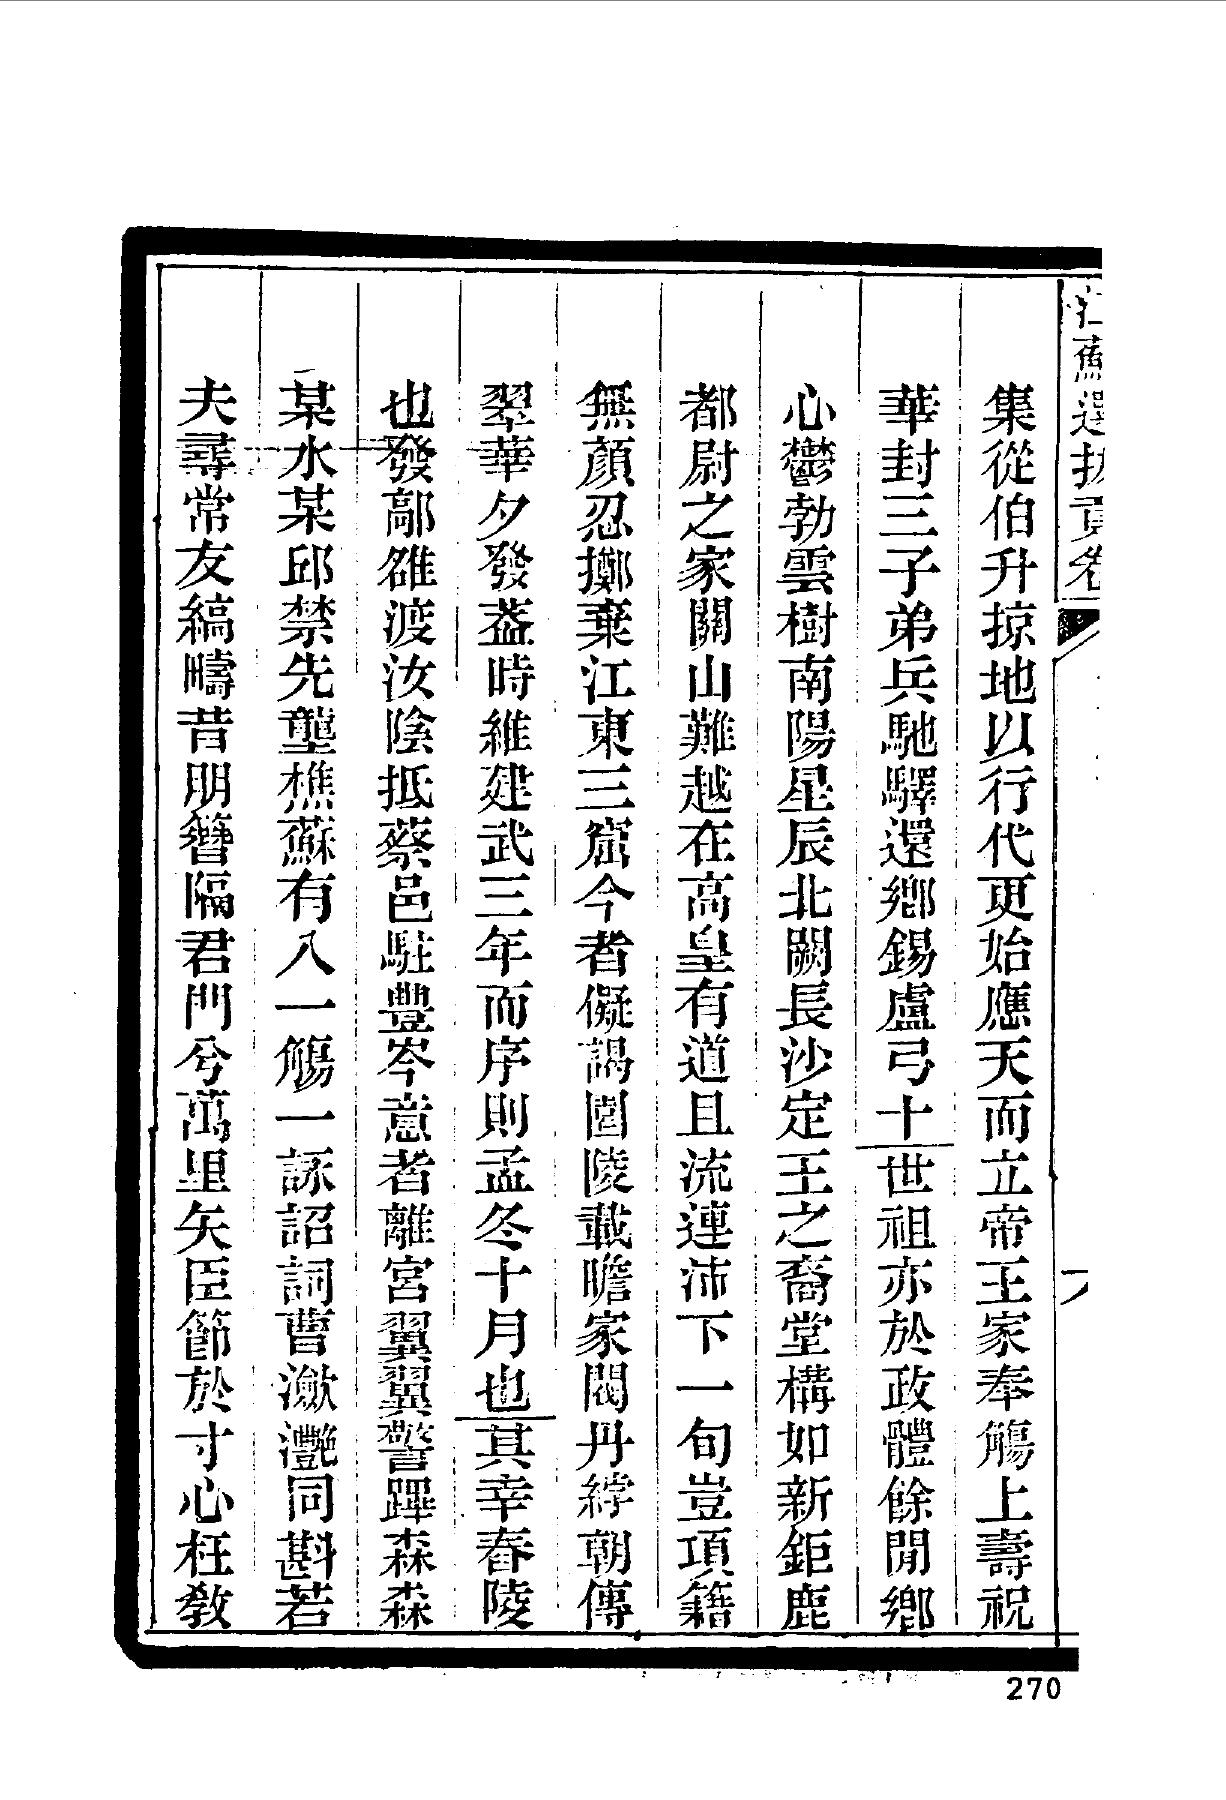 江蘇選拔貢卷
集從伯升掠地以行代更始應天而立帝王家奉觴上壽祝
華封三子弟兵馳驛還鄉錫盧弓十世祖亦於政體餘閒鄉
心鬱勃雲樹南陽星辰北闕長沙定王之裔堂構如新鉅鹿
都尉之家關山難越在高皇有道且流連沛下一旬豈項籍
無顏忍擲棄江東三窟今者儗謁園陵載瞻家閥丹綍朝傳
翠華夕發葢時維建武三年而序則孟冬十月也其幸舂陵
也發鄗雒渡汝陰抵蔡邑駐豐岑意者離宮翼翼警蹕森森
某水某邱禁先壟樵蘇有人一觴一詠詔詞曹瀲灧同斟若
夫尋常友縞疇昔朋簪隔君門兮萬里矢臣節於寸心枉教
270